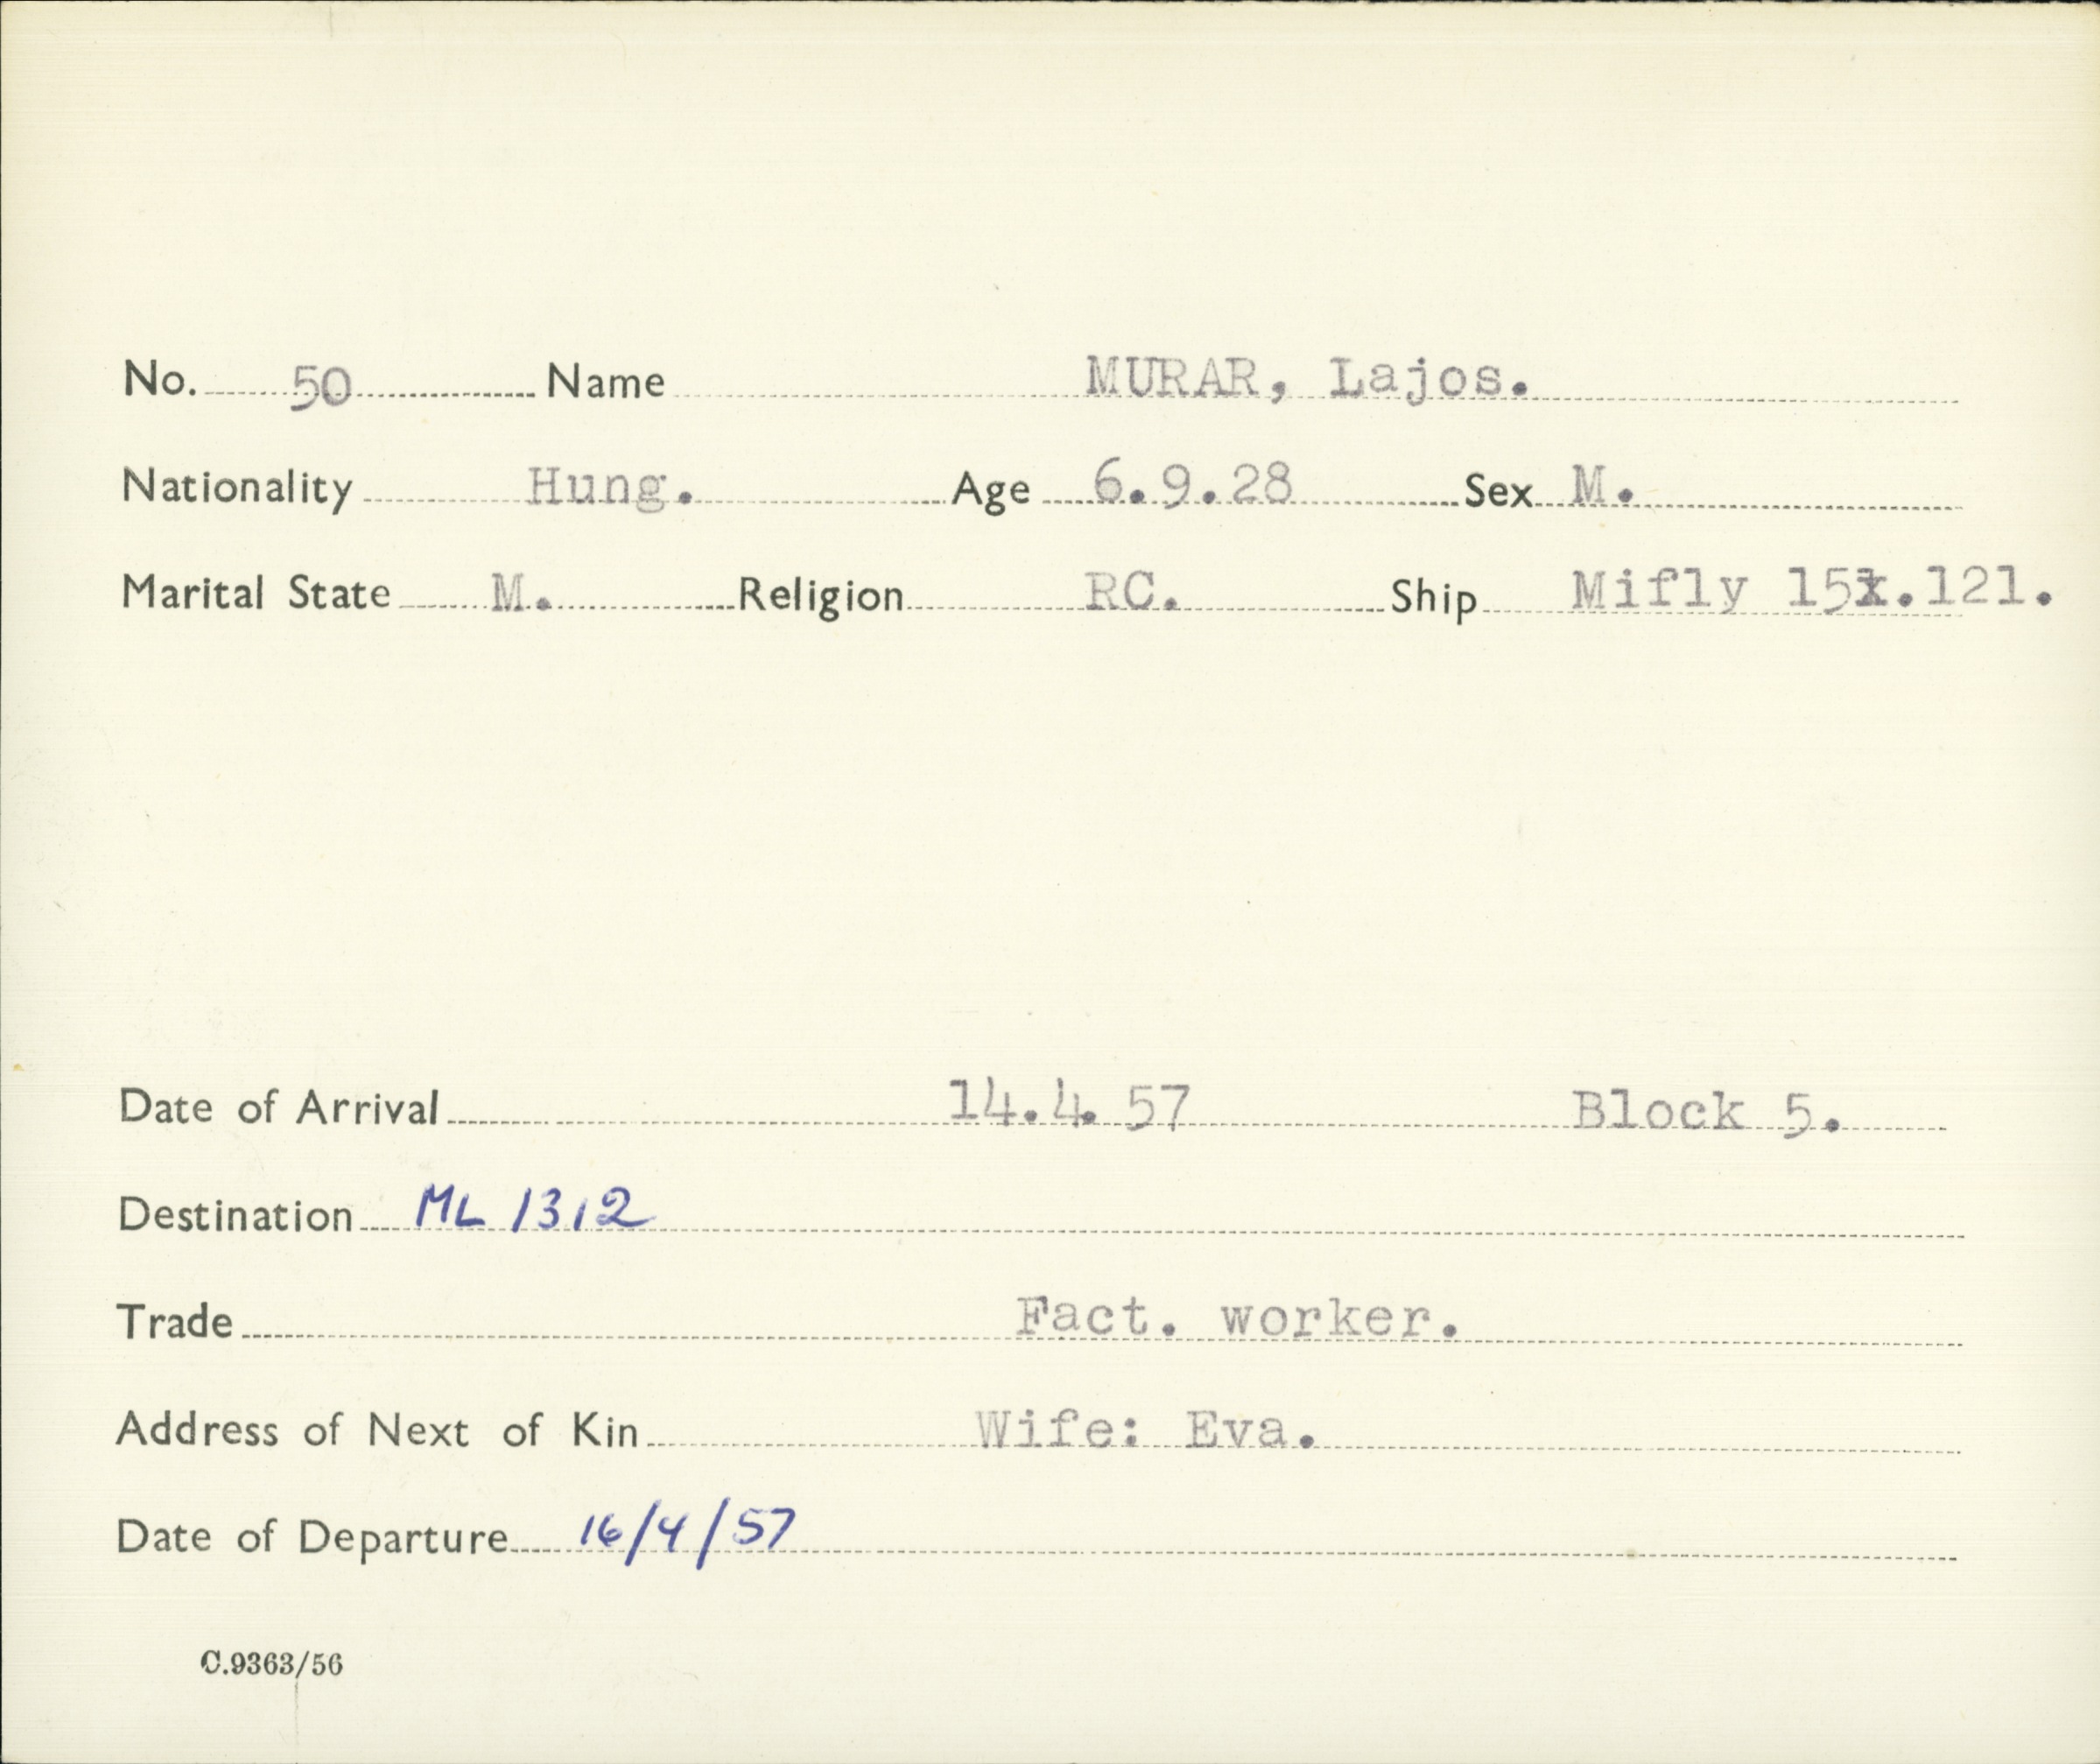 No. 50 Name MURAR, Lajos.
Nationality Hung. Age 6.9.28 Sex M.
Marital State M. Religion RC. Ship Mifly 15x.121.
Date of Arrival 14.4.57 Block 5.
Destination ML 1312
Trade Fact. worker.
Address of Next of Kin Wife: Eva.
Date of Departure 16/4/57
C.9363/56